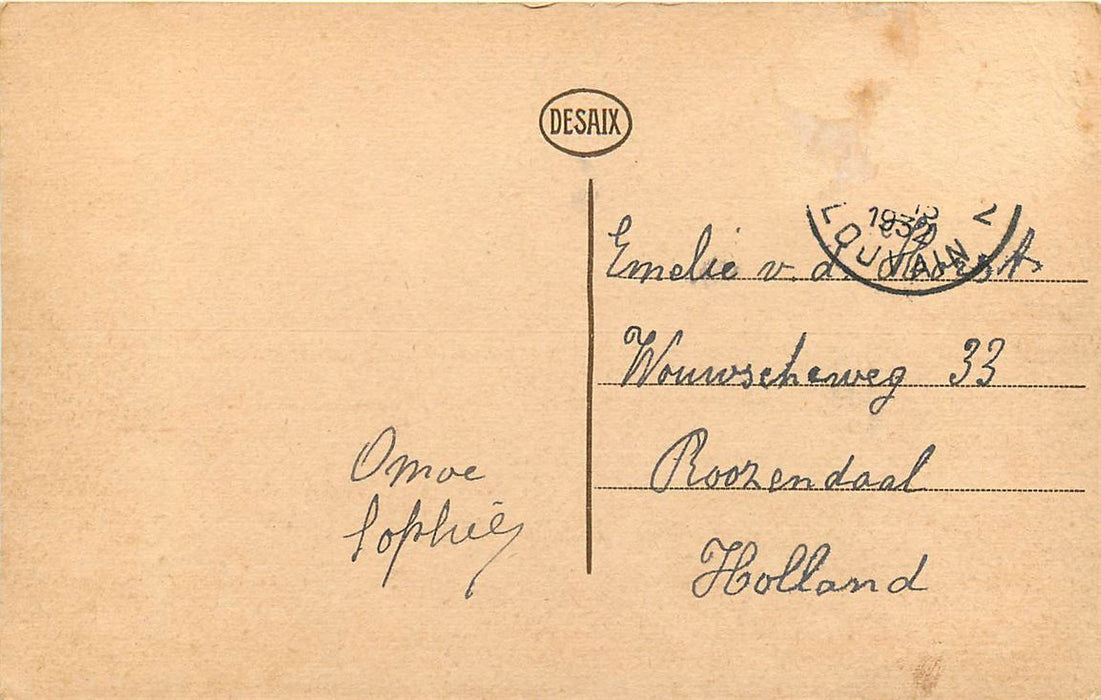 DESAIX
1932
LOUVAIN 2
Emelie v. d. Horst
Wouwscheweg 33
Roozendaal
Holland
Omoe
Sophie